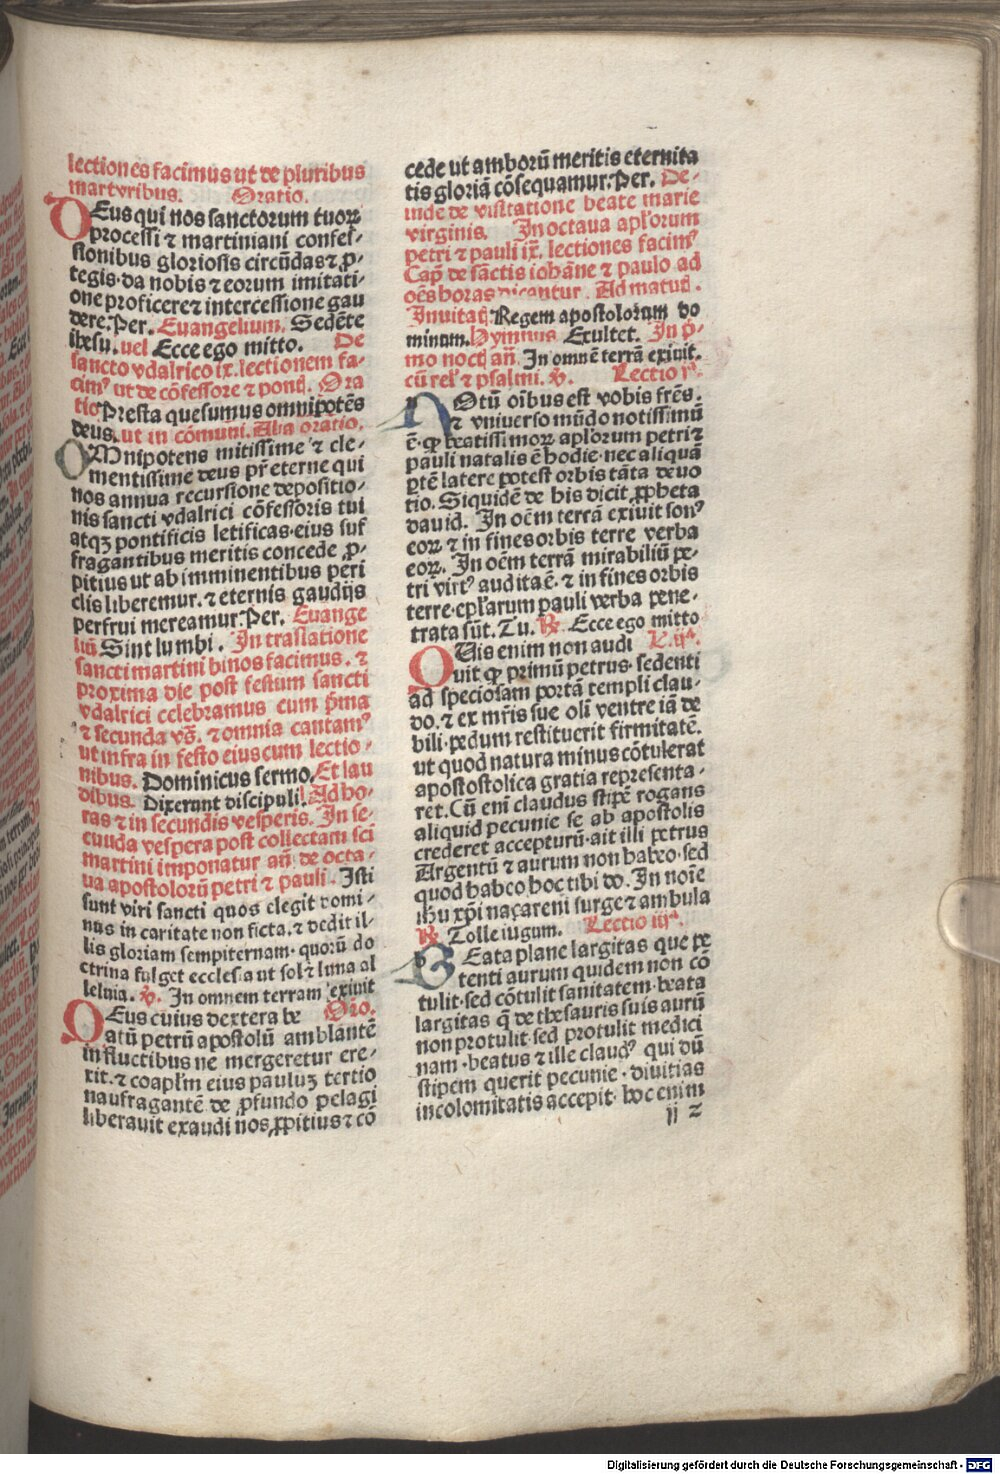 lectiones facimus ut de pluribus
martyribus. Oratio.
DEus qui nos sanctorum tuoꝝ
processi ⁊ martiniani confes-
sionibus gloriosis circūdas ⁊ ꝓ-
tegis. da nobis ⁊ eorum imitati-
one proficere ⁊ intercessione gau
dere. Per. Euangelium. Sedēte
ihesu. uel Ecce ego mitto. De
sancto vdalrico ix. lectionem fa-
cimꝰ ut de cōfessore ⁊ pontī. Ora
tio Presta quesumus omnipotēs
deus. ut in cōmuni. Alia oratio.
OMnipotens mitissime ⁊ cle-
mentissime deus pr̄ eterne qui
nos annua recursione depositio-
nis sancti vdalrici cōfessoris tui
atqꝫ pontificis letificas. eius suf
fragantibus meritis concede ꝓ-
pitius ut ab imminentibus peri
clis liberemur. ⁊ eternis gaudijs
perfrui mereamur. Per. Euange
liū Sint lumbi. In traslatione
sancti martini binos facimus. ⁊
proxima die post festum sancti
vdalrici celebramus eum p̄ma
⁊ secunda vō. ⁊ omnia cantamꝰ
ut infra in festo eius cum lectio-
nibus. Dominicus sermo. Et lau
dibus. Dixerunt discipuli. Ad ho-
ras ⁊ in secundis vesperis. In se-
cunda vespera post collectam sci
martini imponatur añ. de octa-
ua apostolorū petri ⁊ pauli. Isti
sunt viri sancti quos elegit domi-
nus in caritate non ficta. ⁊ dedit il-
lis gloriam sempiternam. quorū do
ctrina fulget ecclesia ut sol ⁊ luna al
leluia. ℣. In omnem terram exiuit
DEus cuius dextera be Orō.
atū petrū apostolū amblantē
in fluctibus ne mergeretur ere-
xit. ⁊ coapl̄m eius pauluꝫ tertio
naufragantē de ꝓfundo pelagi
liberauit exaudi nos ꝓpitius ⁊ cō
cede ut amborū meritis eternita
tis gloriā cōsequamur. Per. De-
inde de visitatione beate marie
virginis. In octaua apl'orum
petri ⁊ pauli ix. lectiones facimꝰ
Cap̄ de sāctis iohāne ⁊ paulo ad
oēs horas dicantur. Ad matuī.
Inuitaī Regem apostolorum do
minum. Hymnus Exultet. In p̄-
mo nocī añ. In omnē terrā exiuit.
cū rel'. ⁊ psalmi. ℣. Lectio iᵃ.
NOtū oībus est vobis frēs.
⁊ vniuerso mūdo notissimū
ē. ꝙ beatissimoꝝ apl'orum petri ⁊
pauli natalis ē hodie. nec aliquā
ꝑtē latere potest orbis tāta deuo
tio. Siquidē de his dicit ꝓpheta
dauid. In oēm terrā exiuit sonꝰ
eoꝝ ⁊ in fines orbis terre verba
eoꝝ. In oēm terrā mirabiliū pe-
tri virtꝰ audita ē. ⁊ in fines orbis
terre. epl'arum pauli verba pene-
trata sūt. Tu. ℟. Ecce ego mitto
QUis enim non audi L. ijᵃ.
uit ꝙ primū petrus. sedenti
ad speciosam portā templi clau-
do. ⁊ ex mr̄is sue oli ventre iā de
bili. pedum restituerit firmitatē.
ut quod natura minus cōtulerat
apostostolica gratia representa-
ret. Cū eni claudus stipē rogans
aliquid pecunie se ab apostolis
crederet accepturū. ait illi petrus
Argentū ⁊ aurum non habeo. sed
quod habeo hoc tibi do. In noīe
ihu xp̄i naçareni surge ⁊ ambula
℟ Tolle iugum. Lectio iijᵃ.
BEata plane largitas que pe
tenti aurum quidem non cō
tulit. sed cōtulit sanitatem. beata
largitas q̄ de thesauris suis aurū
non protulit. sed protulit medici
nam. beatus ⁊ ille claudꝰ qui dū
stipem querit pecunie. diuitias
incolomitatis accepit. hoc enim
ll 2
Digitalisierung gefördert durch die Deutsche Forschungsgemeinschaft - DFG